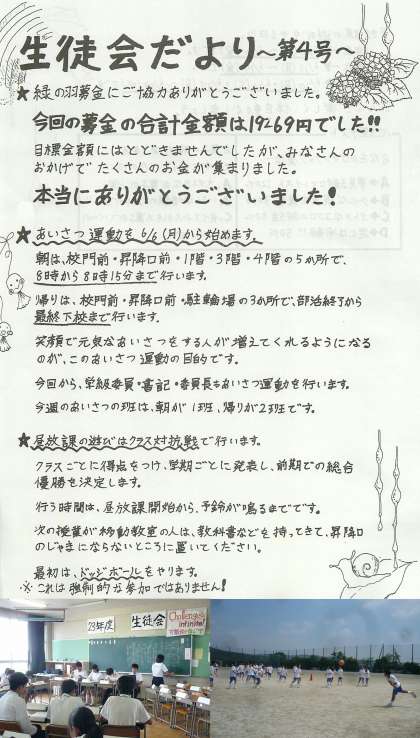 生徒会だより～第4号～
★緑の羽募金にご協力ありがとうございました。
今回の募金の合計金額は19269円でした!!
目標金額にはとどきませんでしたが、みなさんの
おかげでたくさんのお金が集まりました。
本当にありがとうございました!
★あいさつ運動を6/6(月)から始めます。
朝は、校門前・昇降口前・1階・3階・4階の5か所で、
8時から8時15分まで行います。
帰りは、校門前・昇降口前・駐輪場の3か所で、部活終了から
最終下校まで行います。
笑顔で元気なあいさつをする人が増えてくれるようになる
のが、このあいさつ運動の目的です。
今回から、学級委員・書記・委員長もあいさつ運動を行います。
今週のあいさつの班は、朝が1班、帰りが2班です。
★昼放課の遊びはクラス対抗戦で行います。
クラスごとに得点をつけ、学期ごとに発表し、前期での総合
優勝を決定します。
行う時間は、昼放課開始から、予鈴が鳴るまでです。
次の授業が移動教室の人は、教科書などを持ってきて、昇降口
のじゃまにならないところに置いてください。
最初は、ドッジボールをやります。
※これは強制的な参加ではありません!
23年度
生徒会
Challenge
infinite!